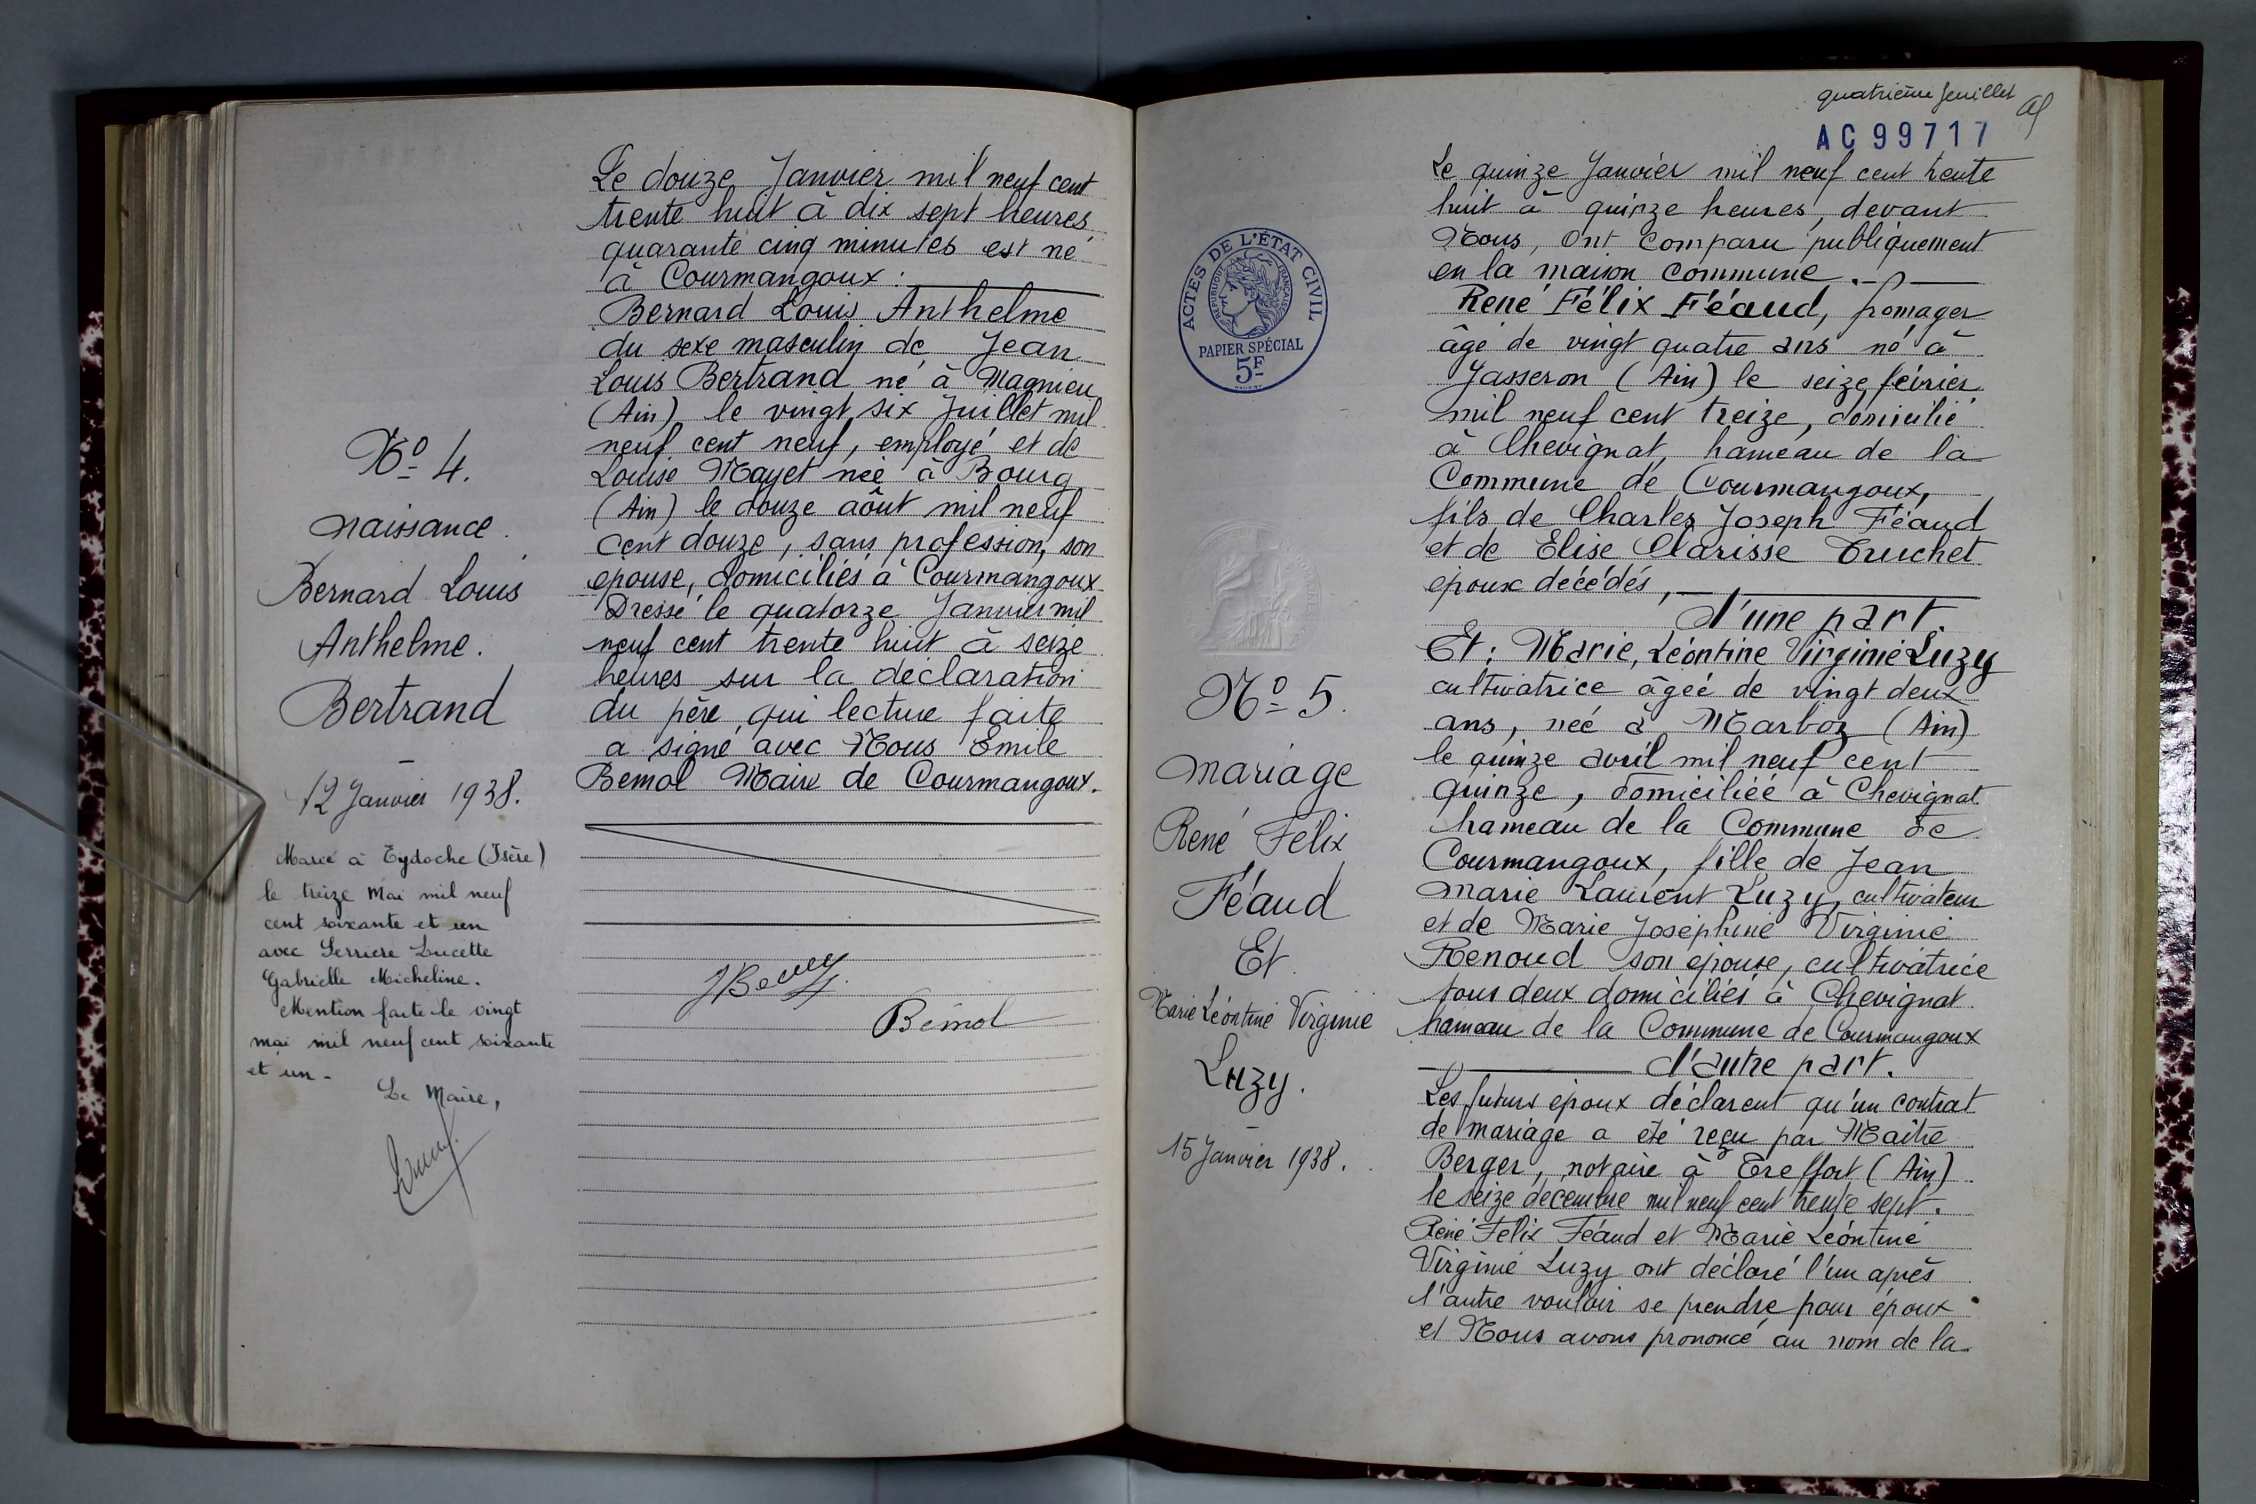 Nº 4.
naissance.
Bernard Louis
Anthelme.
Bertrand
12 Janvier 1938.
Marié à Eydoche (Isère)
le treize Mai mil neuf
cent soixante et un
avec Serriere Lucette
Gabrielle Micheline.
Mention faite le vingt
mai mil neuf cent soixante
et un.
Le Maire,
Le douze Janvier mil neuf cent
trente huit à dix sept heures
quarante cinq minutes est né
à Courmangoux :
Bernard Louis Anthelme
du sexe masculin de Jean
Louis Bertrand né à Magnieu
(Ain) le vingt six Juillet mil
neuf cent neuf, employé et de
Louise Mayet née à Bourg
(Ain) le douze août mil neuf
cent douze, sans profession, son
épouse, domiciliés à Courmangoux
Dressé le quatorze Janvier mil
neuf cent trente huit à seize
heures sur la déclaration
du père, qui lecture faite
a signé avec Nous Emile
Bemol Maire de Courmangoux.
Bémol
quatrième feuillet
AC 99717
ACTES DE L'ÉTAT CIVIL
RÉPUBLIQUE FRANÇAISE
PAPIER SPÉCIAL
5F
Nº 5.
mariage
René Félix
Féaud
Et
Marie Léontine Virginie
Luzy.
15 Janvier 1938.
Le quinze Janvier mil neuf cent trente
huit à quinze heures, devant
Nous, Ont comparu publiquement
en la maison commune.
René Félix Féaud, fromager
âgé de vingt quatre ans né à
Jasseron (Ain) le seize février
mil neuf cent treize, domicilié
à Chevignat, hameau de la
Commune de Courmangoux,
fils de Charles Joseph Féaud
et de Elise Clarisse Truchet
époux décédés,
d'une part.
Et : Marie, Léontine Virginie Luzy
cultivatrice âgée de vingt deux
ans, née à Marboz (Ain)
le quinze avril mil neuf cent
quinze, domiciliée à Chevignat
hameau de la Commune de
Courmangoux, fille de Jean
Marie Laurent Luzy, cultivateur
et de Marie Joséphine Virginie
Renoud son épouse, cultivatrice
tous deux domiciliés à Chevignat
hameau de la Commune de Courmangoux
d'autre part.
Les futurs époux déclarent qu'un contrat
de mariage a été reçu par Maître
Berger, notaire à Treffort (Ain)
le seize décembre mil neuf cent trente sept.
René Félix Féaud et Marie Léontine
Virginie Luzy ont déclaré l'un après
l'autre vouloir se prendre pour époux
et Nous avons prononcé au nom de la